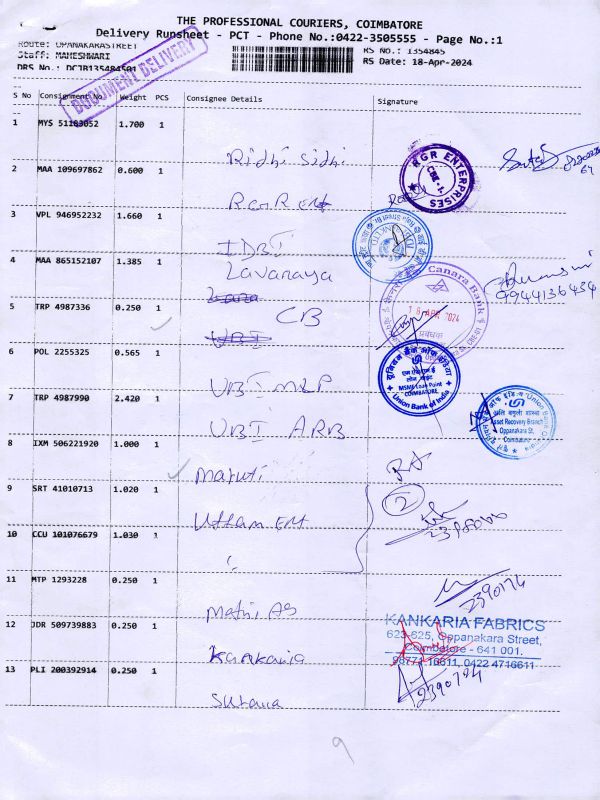 THE PROFESSIONAL COURIERS, COIMBATORE
Delivery Runsheet - PCT - Phone No.:0422-3505555 - Page No.:1
Route: OPANAKARASTREET
RS No.: 1354845
Staff: MAHESHWARI
RS Date: 18-Apr-2024
DRS No.: DCJB135484501
DOCUMENT DELIVERY
S No Consignment No Weight PCS Consignee Details Signature
1 MYS 51183052 1.700 1
Ridhi Sidhi
RGR ENTERPRISES
CBE-1
2 MAA 109697862 0.600 1
RGR Ent
3 VPL 946952232 1.660 1
IDBI
4 MAA 865152107 1.385 1
Lavanaya
Canara Bank
9944136434
18 APR 2024
प्रबंधक
5 TRP 4987336 0.250 1
CB
UBI
6 POL 2255325 0.565 1
UBI MLP
एम एस एम ई
लोन पॉइंट
MSME Loan Point
COIMBATORE
Union Bank of India
7 TRP 4987990 2.420 1
UBI ARB
Asset Recovery Branch
Oppanakara St,
Coimbatore
8 IXM 506221920 1.000 1
Maruti
9 SRT 41010713 1.020 1
2
Uttam Ent
10 CCU 101076679 1.030 1
"
11 MTP 1293228 0.250 1
2390174
12 JDR 509739883 0.250 1
KANKARIA FABRICS
623-625, Oppanakara Street,
Coimbatore - 641 001.
98774-16611, 0422 4716611
Kankaria
13 PLI 200392914 0.250 1
2390704
Sutaria
9